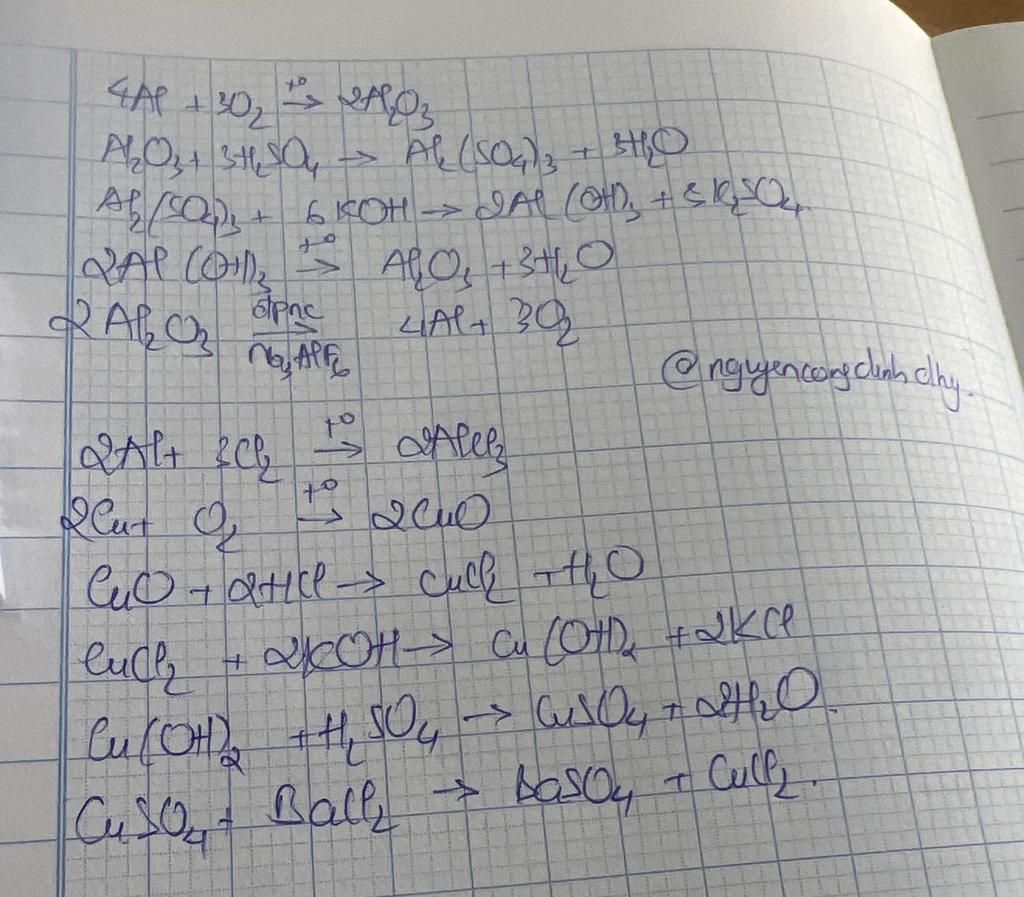 4Al + 3O2 t° → 2Al2O3
Al2O3 + 3H2SO4 → Al2(SO4)3 + 3H2O
Al2(SO4)3 + 6KOH → 2Al(OH)3 + 3K2SO4.
2Al(OH)3 t° → Al2O3 + 3H2O
2Al2O3 đpnc → Na3AlF6 4Al + 3O2
@nguyencongdinhdhy.
2Al + 3Cl2 t° → 2AlCl3
2Cu + O2 t° → 2CuO
CuO + 2HCl → CuCl2 + H2O
CuCl2 + 2KOH → Cu(OH)2 + 2KCl
Cu(OH)2 + H2SO4 → CuSO4 + 2H2O.
CuSO4 + BaCl2 → BaSO4 + CuCl2.